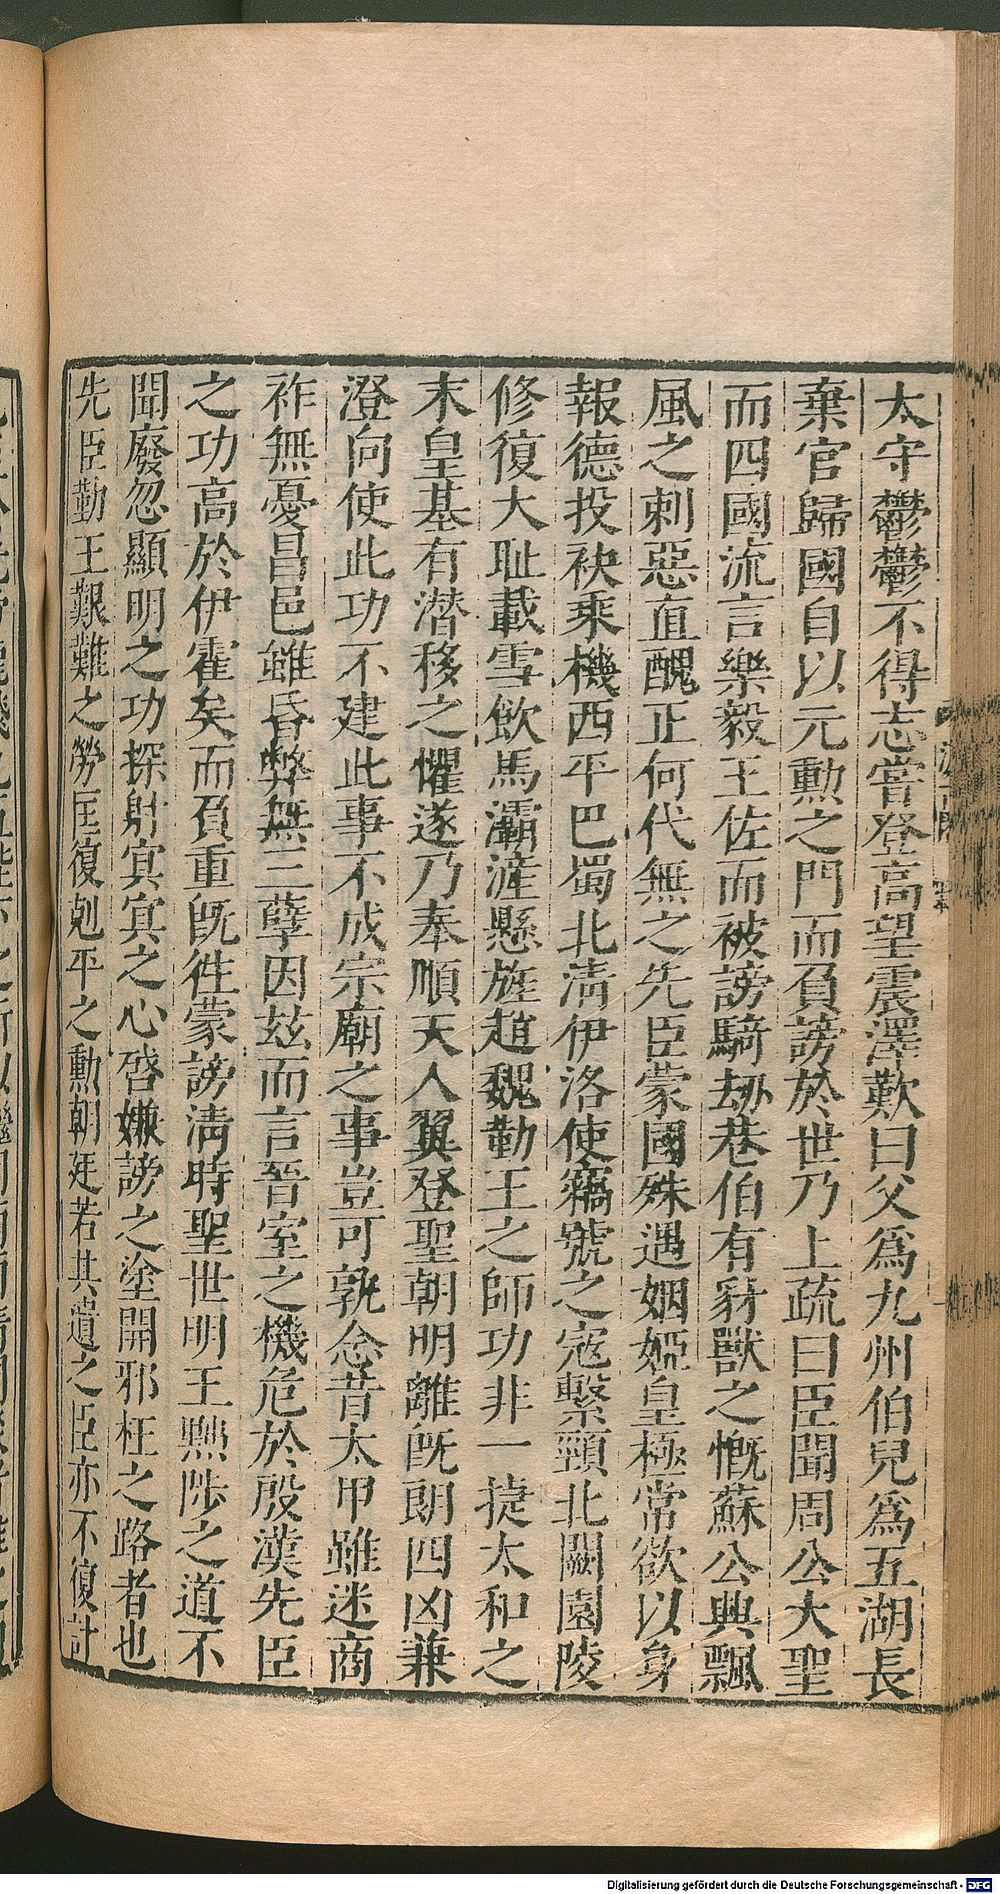 太守鬱鬱不得志嘗登高望震澤歎曰父爲九州伯兒爲五湖長
棄官歸國自以元勳之門而負謗於世乃上疏曰臣聞周公大聖
而四國流言樂毅王佐而被謗騎劫巷伯有豺獸之慨蘇公興飄
風之刺惡直醜正何代無之先臣蒙國殊遇姻婭皇極常欲以身
報德投袂乘機西平巴蜀北淸伊洛使竊號之寇繫頸北闕園陵
修復大耻載雪飮馬灞滻懸旌趙魏勤王之師功非一捷太和之
末皇基有潛移之懼遂乃奉順天人翼登聖朝明離旣朗四凶兼
澄向使此功不建此事不成宗廟之事豈可孰念昔太甲雖迷商
祚無憂昌邑雖昏弊無三孽因玆而言晉室之機危於殷漢先臣
之功高於伊霍矣而負重旣徃蒙謗淸時聖世明王黜陟之道不
聞廢忽顯明之功探射㝠㝠之心啓嫌謗之塗開邪枉之路者也
先臣勤王艱難之勞匡復剋平之勳朝廷若其遺之臣亦不復計
Digitalisierung gefördert durch die Deutsche Forschungsgemeinschaft - DFG